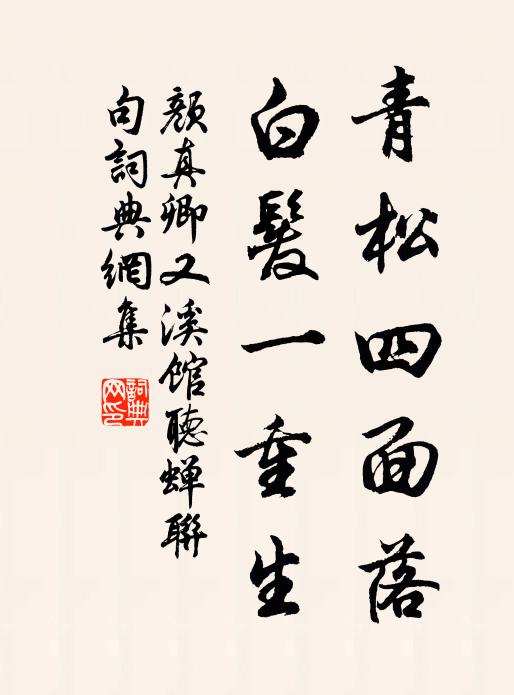 青松四面落
白髮一重生
顏真卿又溪館聽蟬聯
句詞典網集
詞典网印